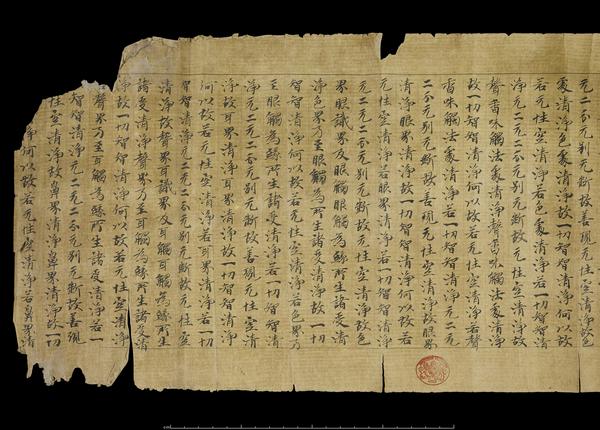 无二无別无斷故善現无性空清淨故色
處清淨色處清淨故一切智智清淨何以故
若无性空清淨若色處清淨若一切智智清
淨无二无二分无別无斷故无性空清淨故
聲香味觸法處清淨聲香味觸法處清淨
故一切智智清淨何以故若无性空清淨若聲
香味觸法處清淨若一切智智清淨无二无
二分无別无斷故善現无性空清淨故眼界
清淨眼界清淨故一切智智清淨何以故若
无性空清淨若眼界清淨若一切智智清淨
无二无二分无別无斷故无性空清淨故色
界眼識界及眼觸眼觸為緣所生諸受清
淨色界乃至眼觸為緣所生諸受清淨故一切
智智清淨何以故若无性空清淨若色界乃
至眼觸為緣所生諸受清淨若一切智智清
淨无二无二分无別无斷故善現无性空清
淨故耳界清淨耳界清淨故一切智智清淨
何以故若无性空清淨若耳界清淨若一切
智智清淨无二无二分无別无斷故无性空
清淨故聲界耳識界及耳觸耳觸為緣所生
諸受清淨聲界乃至耳觸為緣所生諸受清
淨故一切智智清淨何以故若无性空清淨
聲界乃至耳觸為緣所生諸受清淨若一
智智清淨无二无二分无別无斷故善現
性空清淨故鼻界清淨鼻界清淨故一切
淨何以故若无性空清淨若鼻界清